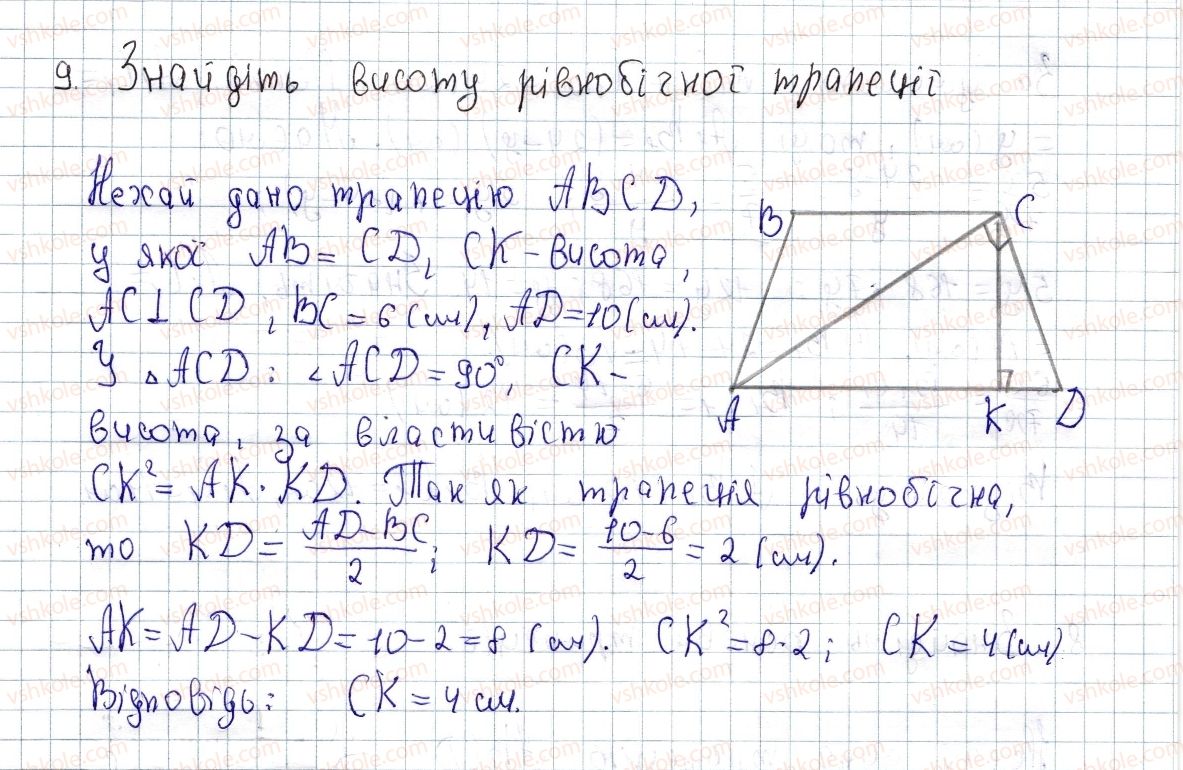 9. Знайдіть висоту рівнобічної трапеції
Нехай дано трапецію ABCD,
у якої AB = CD, CK - висота,
AC⊥CD, BC = 6 (см), AD = 10 (см).
У △ACD: ∠ACD = 90°, CK -
висота, за властивістю
CK² = AK · KD. Так як трапеція рівнобічна,
то KD = (AD - BC)/2; KD = (10 - 6)/2 = 2 (см).
AK = AD - KD = 10 - 2 = 8 (см). CK² = 8 · 2; CK = 4 (см)
Відповідь: CK = 4 см.
B C
A K D
vshkole.com